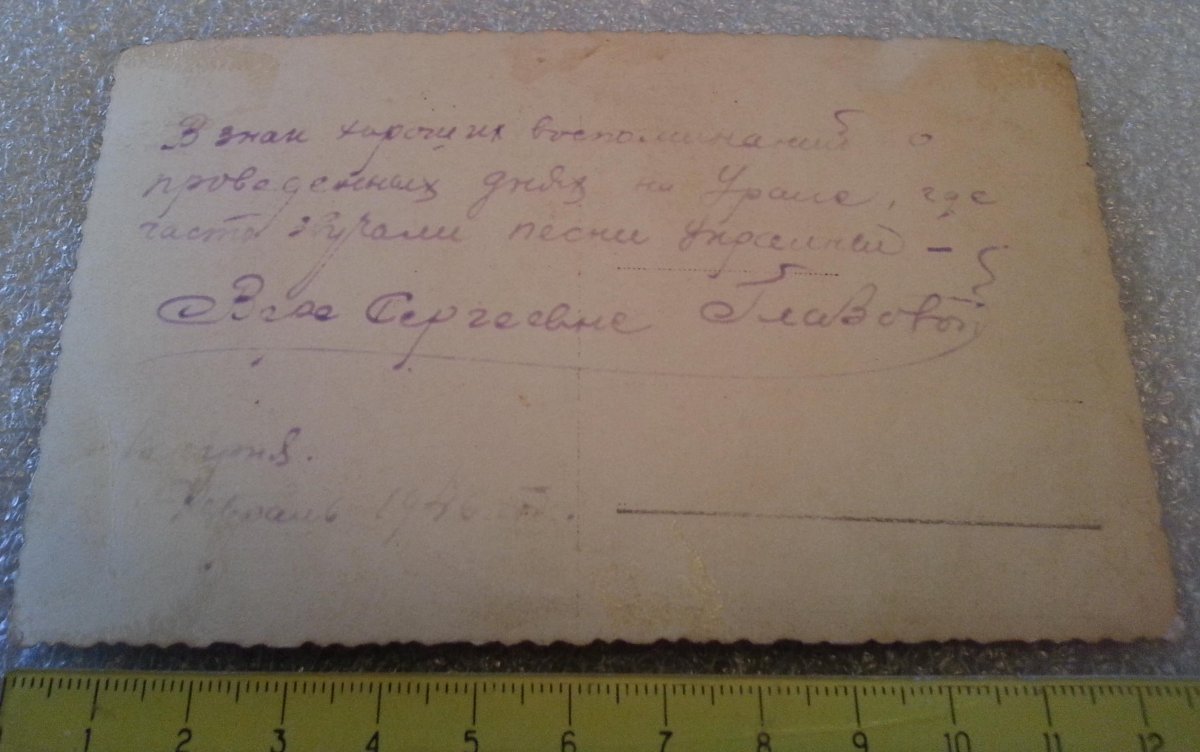 В знак хороших воспоминаний о
проведенных днях на Урале, где
часто звучали песни Украиной –
Вере Сергеевне Глазовой
июня.
1946 г.
1 2 3 4 5 6 7 8 9 10 11 12